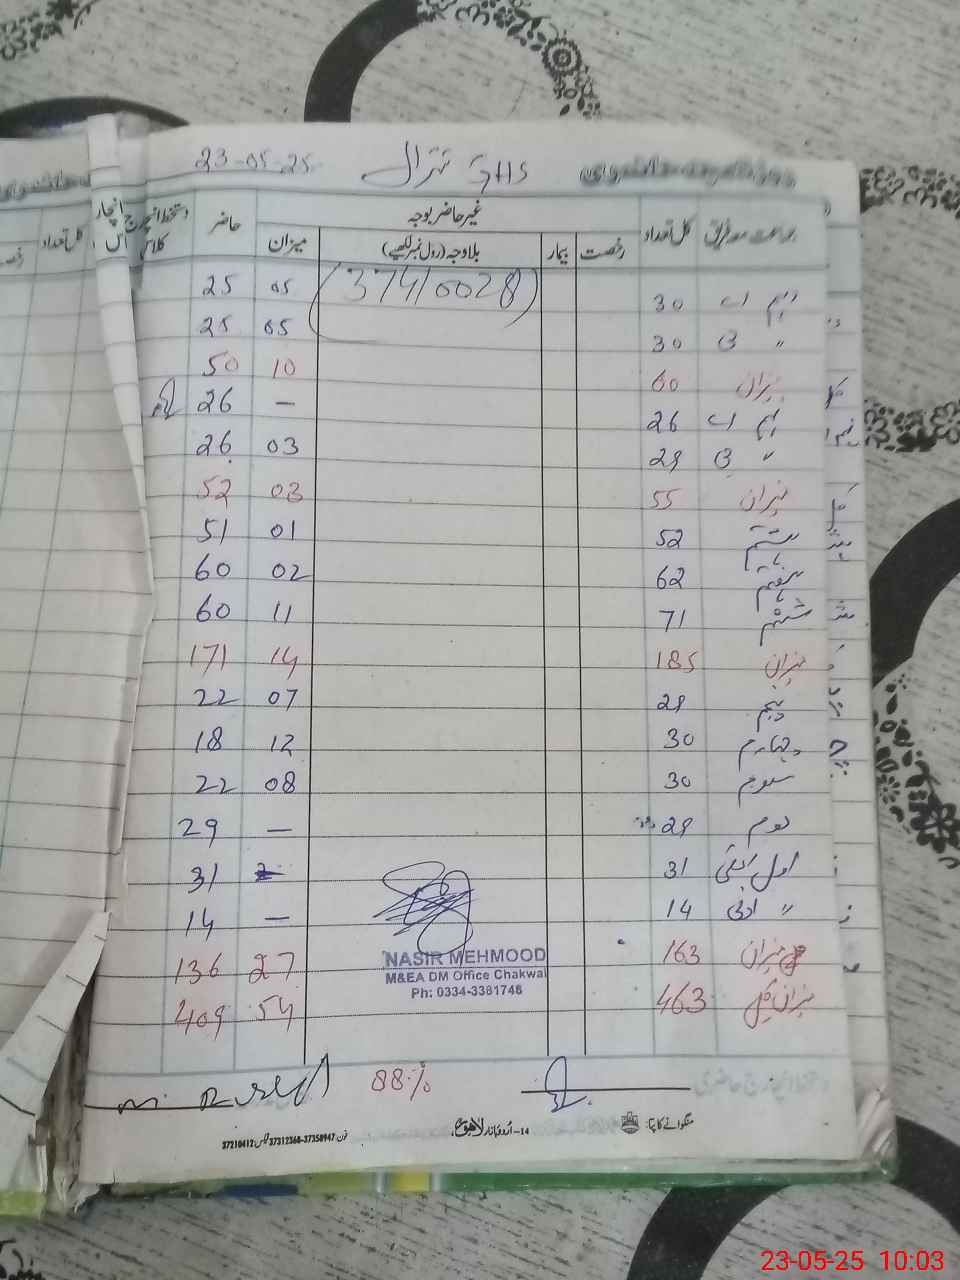 GHS تترال 23-05-25
جماعت معہ فریق کل تعداد غیر حاضر بوجہ حاضر دستخط انچارج کلاس
رخصت بیمار بلاوجہ (رول نمبر لکھیے) میزان
(37410028)
30 05 25
" B 30 05 25
میزان 60 10 50
26 — 26
" B 29 03 26
میزان 55 03 52
ہشتم 52 01 51
ہفتم 62 02 60
ششم 71 11 60
میزان 185 14 171
پنجم 29 07 22
چہارم 30 12 18
سوم 30 08 22
دوم 29 — 29
اول 31 31
" ادنیٰ 14 — 14
میزان 163 27 136
میزان کل 463 54 409
NASIR MEHMOOD
M&EA DM Office Chakwal
Ph: 0334-3381746
88%
منگوانے کا پتا: 14-اُردو بازار لاہور فون: 37358947-37312368 فیکس: 37210412
23-05-25 10:03